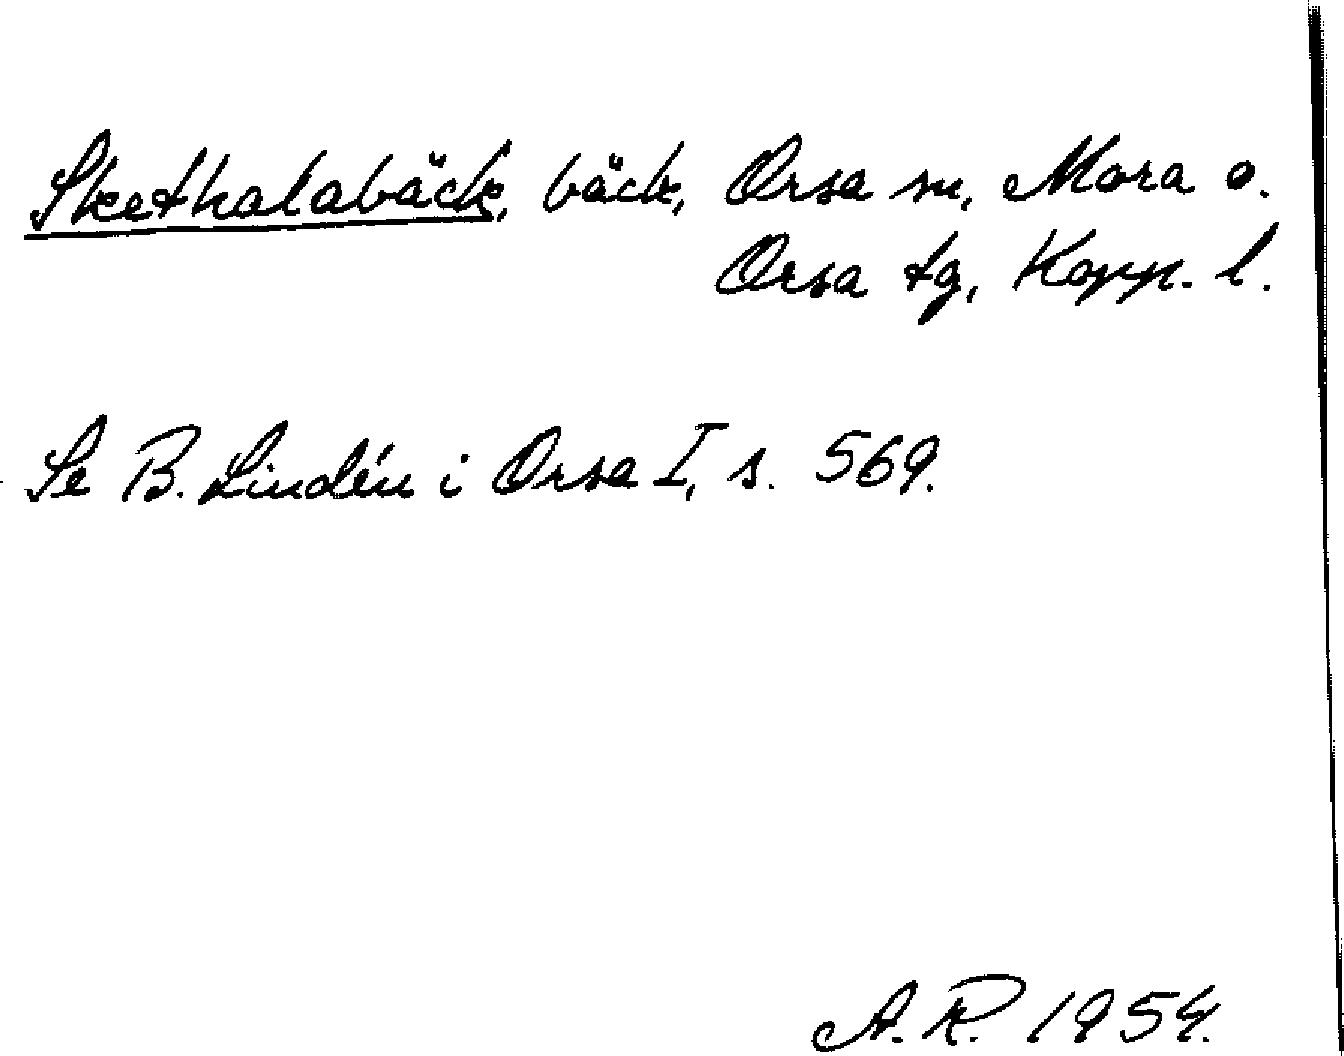 Skethalabäck, bäck, Orsa sn, Mora o.
Orsa tg, Kopp. l.
Se B. Lindén i Orsa I, s. 569.
A.R. 1954.